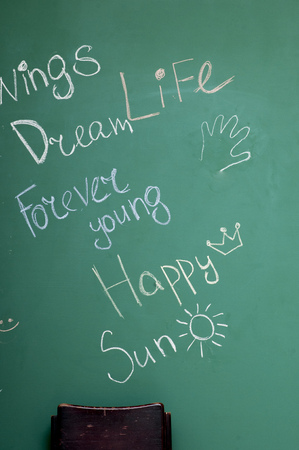 Wings
LiFe
Dream
Forever
young
Happy
Sun